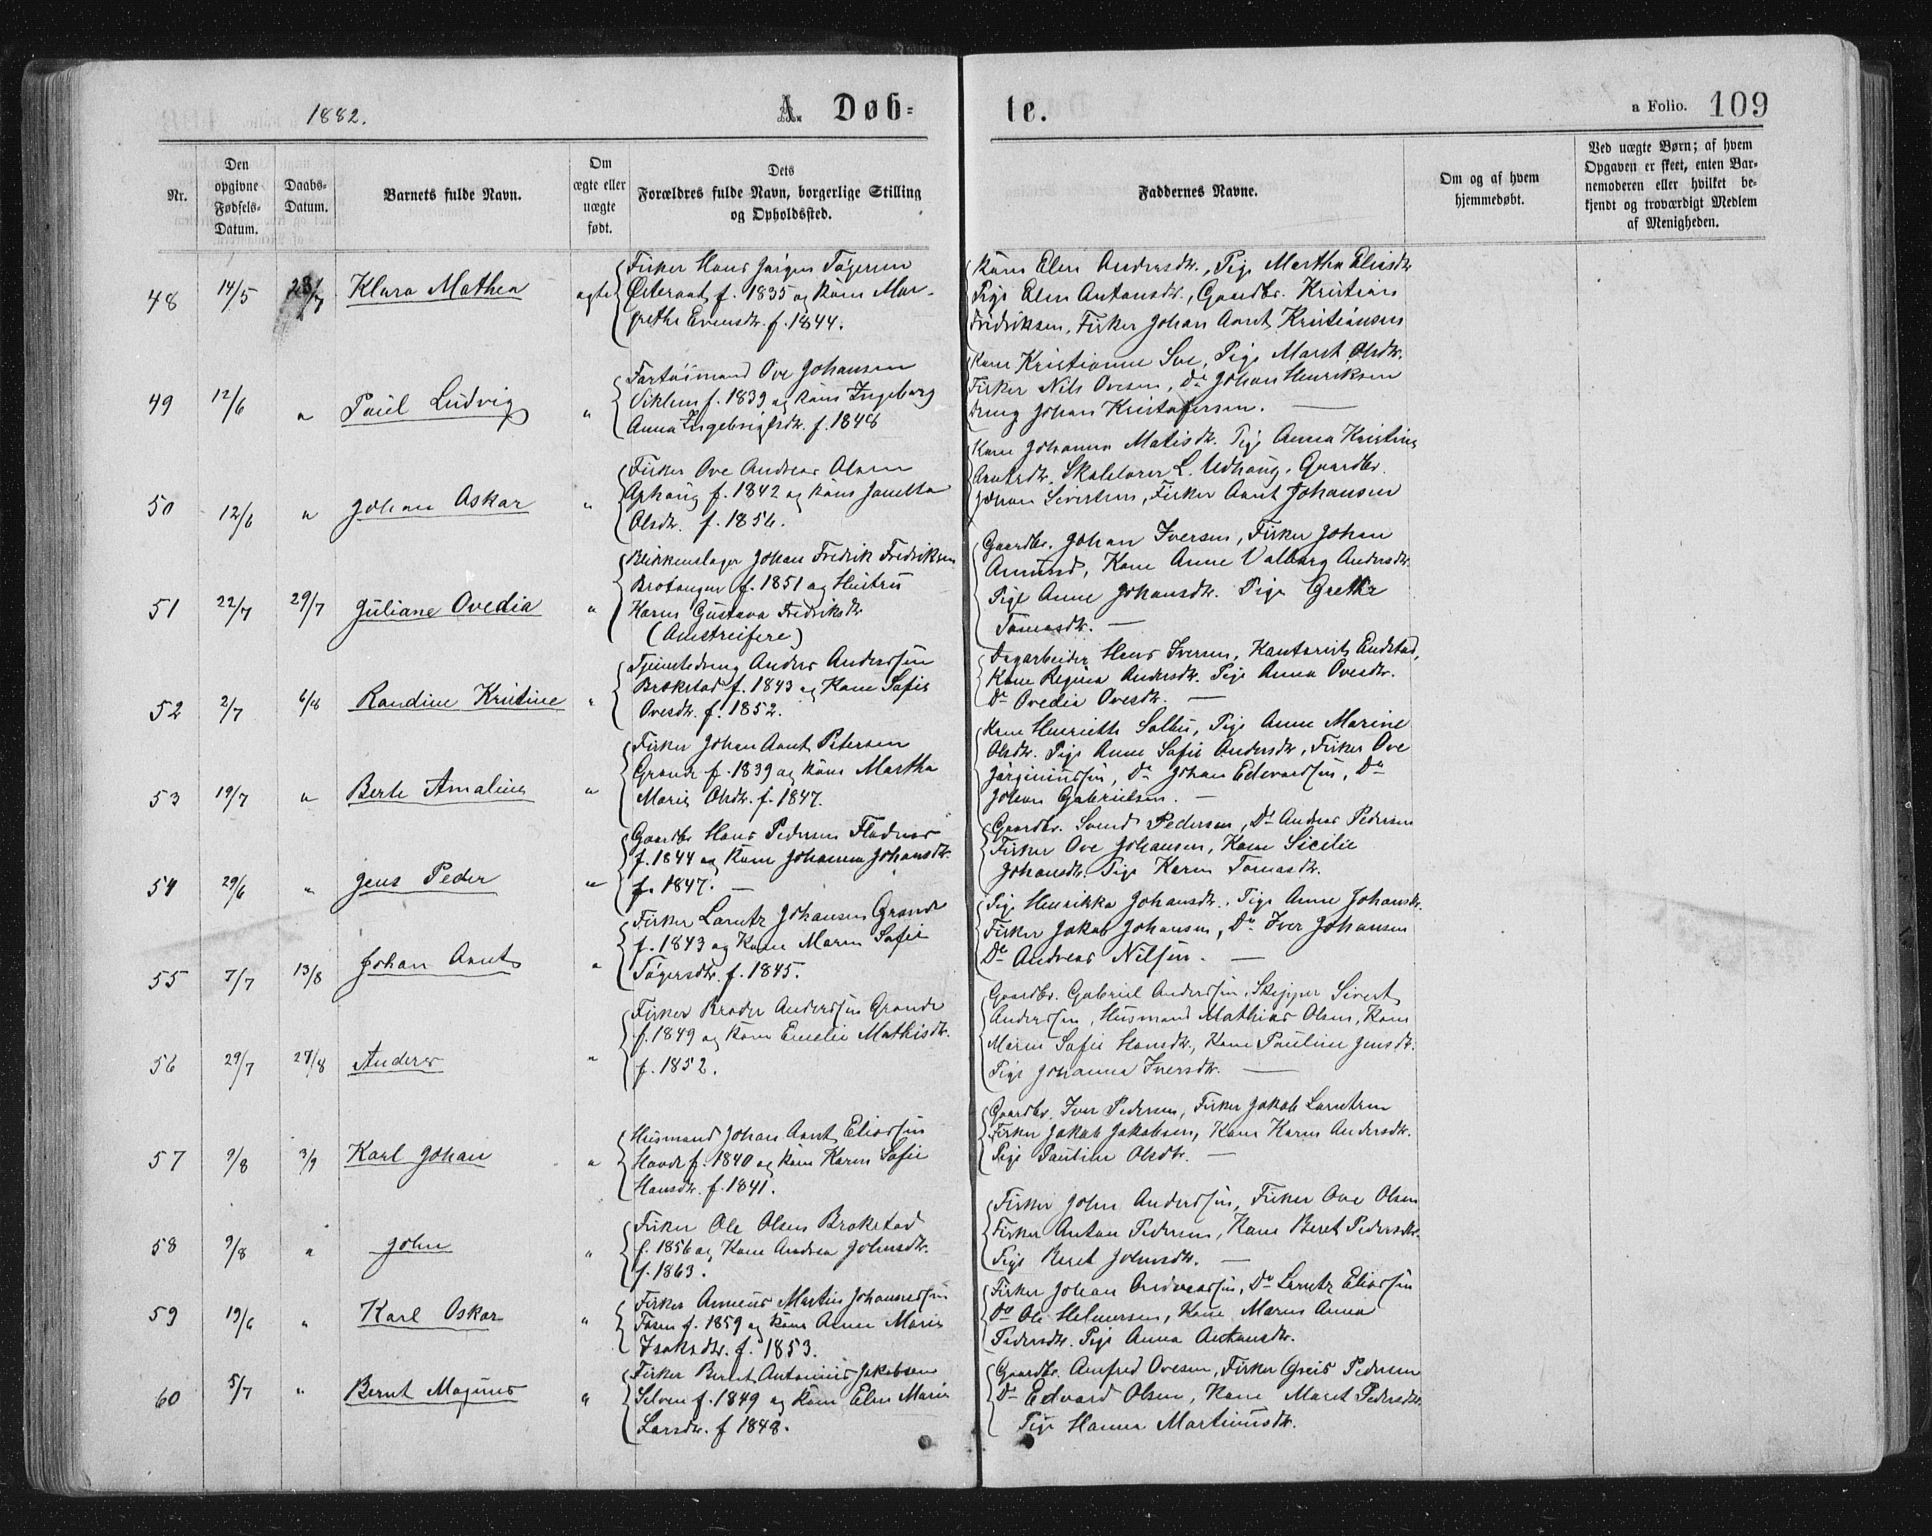 1882.
A. Døb-
te.
a Folio. 109
Nr.
Den opgivne Fødsels-Datum.
Daabs-Datum.
Barnets fulde Navn.
Om ægte eller uægte født.
Dets Forældres fulde Navn, borgerlige Stilling og Opholdssted.
Faddernes Navne.
Om og af hvem hjemmedøbt.
Ved uægte Børn; af hvem Opgaven er skeet, enten Barnemoderen eller hvilket bekjendt og troværdigt Medlem af Menigheden.
48 14/5 23/7 Klara Mathea ægte
Fisker Hans Jørgen Tøgersen
Østeraat f. 1835 og Kone Mar-
grethe Evensdtr. f. 1844.
Kone Elen Andersdtr., Pige Martha Eliasdtr.
Pige Elen Antonsdtr., Gaardbr. Kristian
Fredriksen, Fisker Johan Aant Kristiansen
49 12/6 " Paul Ludvig "
Fartøimand Ove Johansen
Viklem f. 1839 og Kone Ingeborg
Anna Ingebrigtsdtr. f. 1848
Kone Kristianne Sve, Pige Maret Olsdtr.
Fisker Nils Ovesen, Do Johan Henriksen
Dreng Johan Kristofersen.
50 12/6 " Johan Askar "
Fisker Ove Andreas Olsen
Ophaug f. 1842 og Kone Janetta
Olsdtr. f. 1856.
Kone Johanna Matisdtr. Pige Anna Kristine
Aantsdtr. Skolelærer L. Udhaug, Gaardbr.
Johan Sivertsen, Fisker Aant Johansen
51 22/7 29/7 Juliane Ovedia "
Blikkenslager Johan Fredrik Fredriksen
Brotangen f. 1851 og Hustru
Karen Gustava Fredriksdtr.
(Omstreifere)
Gaardbr. Johan Iversen, Fisker Johan
Amund, Kone Anne Valborg Andersdtr.
Pige Anne Johansdtr. Pige Grethe
Tomasdtr.
52 2/7 6/8 Randine Kristine "
Tjenestedreng Anders Anderssen
Brekstad f. 1843 og Kone Sofie
Ovesdtr. f. 1852.
Dagarbeider Hans Iversen,
Kone Regina Andersdtr. Pige Anna Ovesdtr.
Do Ovedia Ovesdtr.
53 19/7 " Berte Amaline "
Fisker Johan Aant Petersen
Grande f. 1839 og Kone Martha
Marie Olsdtr. f. 1847.
Kone Henriette Solbu, Pige Anne Marine
Olsdtr. Pige Anne Sofie Andersdtr., Fisker Ove
Jørginussen, Do Johan Edvardssen, Do
Johan Gabrielsen.
54 29/6 " Jens Peder "
Gaardbr. Hans Pedersen Fladnes
f. 1844 og Kone Johanna Johansdtr.
f. 1847.
Gaardbr. Svend Pedersen, Do Andreas Pedersen
Fisker Ove Johansen, Kone Sicilie
Johansdtr. Pige Karen Tomasdtr.
55 7/7 13/8 Johan Aant "
Fisker Larentz Johansen Grande
f. 1843 og Kone Maren Sofie
Tøgersdtr. f. 1845.
Pige Henrikka Johansdtr., Pige Anne Johansdtr.
Fisker Jakob Johansen, Do Iver Johansen
Do Andreas Nilssen.
56 29/7 27/8 Anders "
Fisker Broder Anderssen Grande
f. 1849 og Kone Emelie Mathisdtr.
f. 1852.
Gaardbr. Gabriel Anderssen, Skipper Sivert
Anderssen, Husmand Mathias Olsen, Kone
Maren Sofie Hansdtr., Kone Pauline Jensdtr.
Pige Johanna Iversdtr.
57 9/8 3/9 Karl Johan "
Husmand Johan Aant Eliassen
Hovde f. 1840 og Kone Karen Sofie
Hansdtr. f. 1841.
Gaardbr. Iver Pedersen, Fisker Jakob Larentsen
Fisker Jakob Jakobsen, Kone Karen Andersdtr.
Pige Pauline Olsdtr.
58 9/8 " John "
Fisker Ole Olsen Brekstad
f. 1856 og Kone Andrea Johnsdtr.
f. 1863.
Fisker John Anderssen, Fisker Ove Olsen
Fisker Anton Pedersen, Kone Beret Pedersdtr.
Pige Beret Johnsdtr.
59 19/6 " Karl Oskar "
Fisker Anneus Martin Johannessen
Fosen f. 1859 og Kone Anne Marie
Isaksdtr. f. 1853.
Fisker Johan Andreassen, Do Larentz Eliassen
Do Ole Helmersen, Kone Maren Anna
Pedersdtr. Pige Anna Antonsdtr.
60 5/7 " Bernt Magnus "
Fisker Bernt Antonius Jakobsen
Selven f. 1849 og Kone Elen Marie
Larsdtr. f 1848.
Gaardbr. Amfred Ovesen, Fisker Greis Pedersen
Do Edvard Olsen, Kone Maret Pedersdtr.
Pige Hanna Martinusdtr.